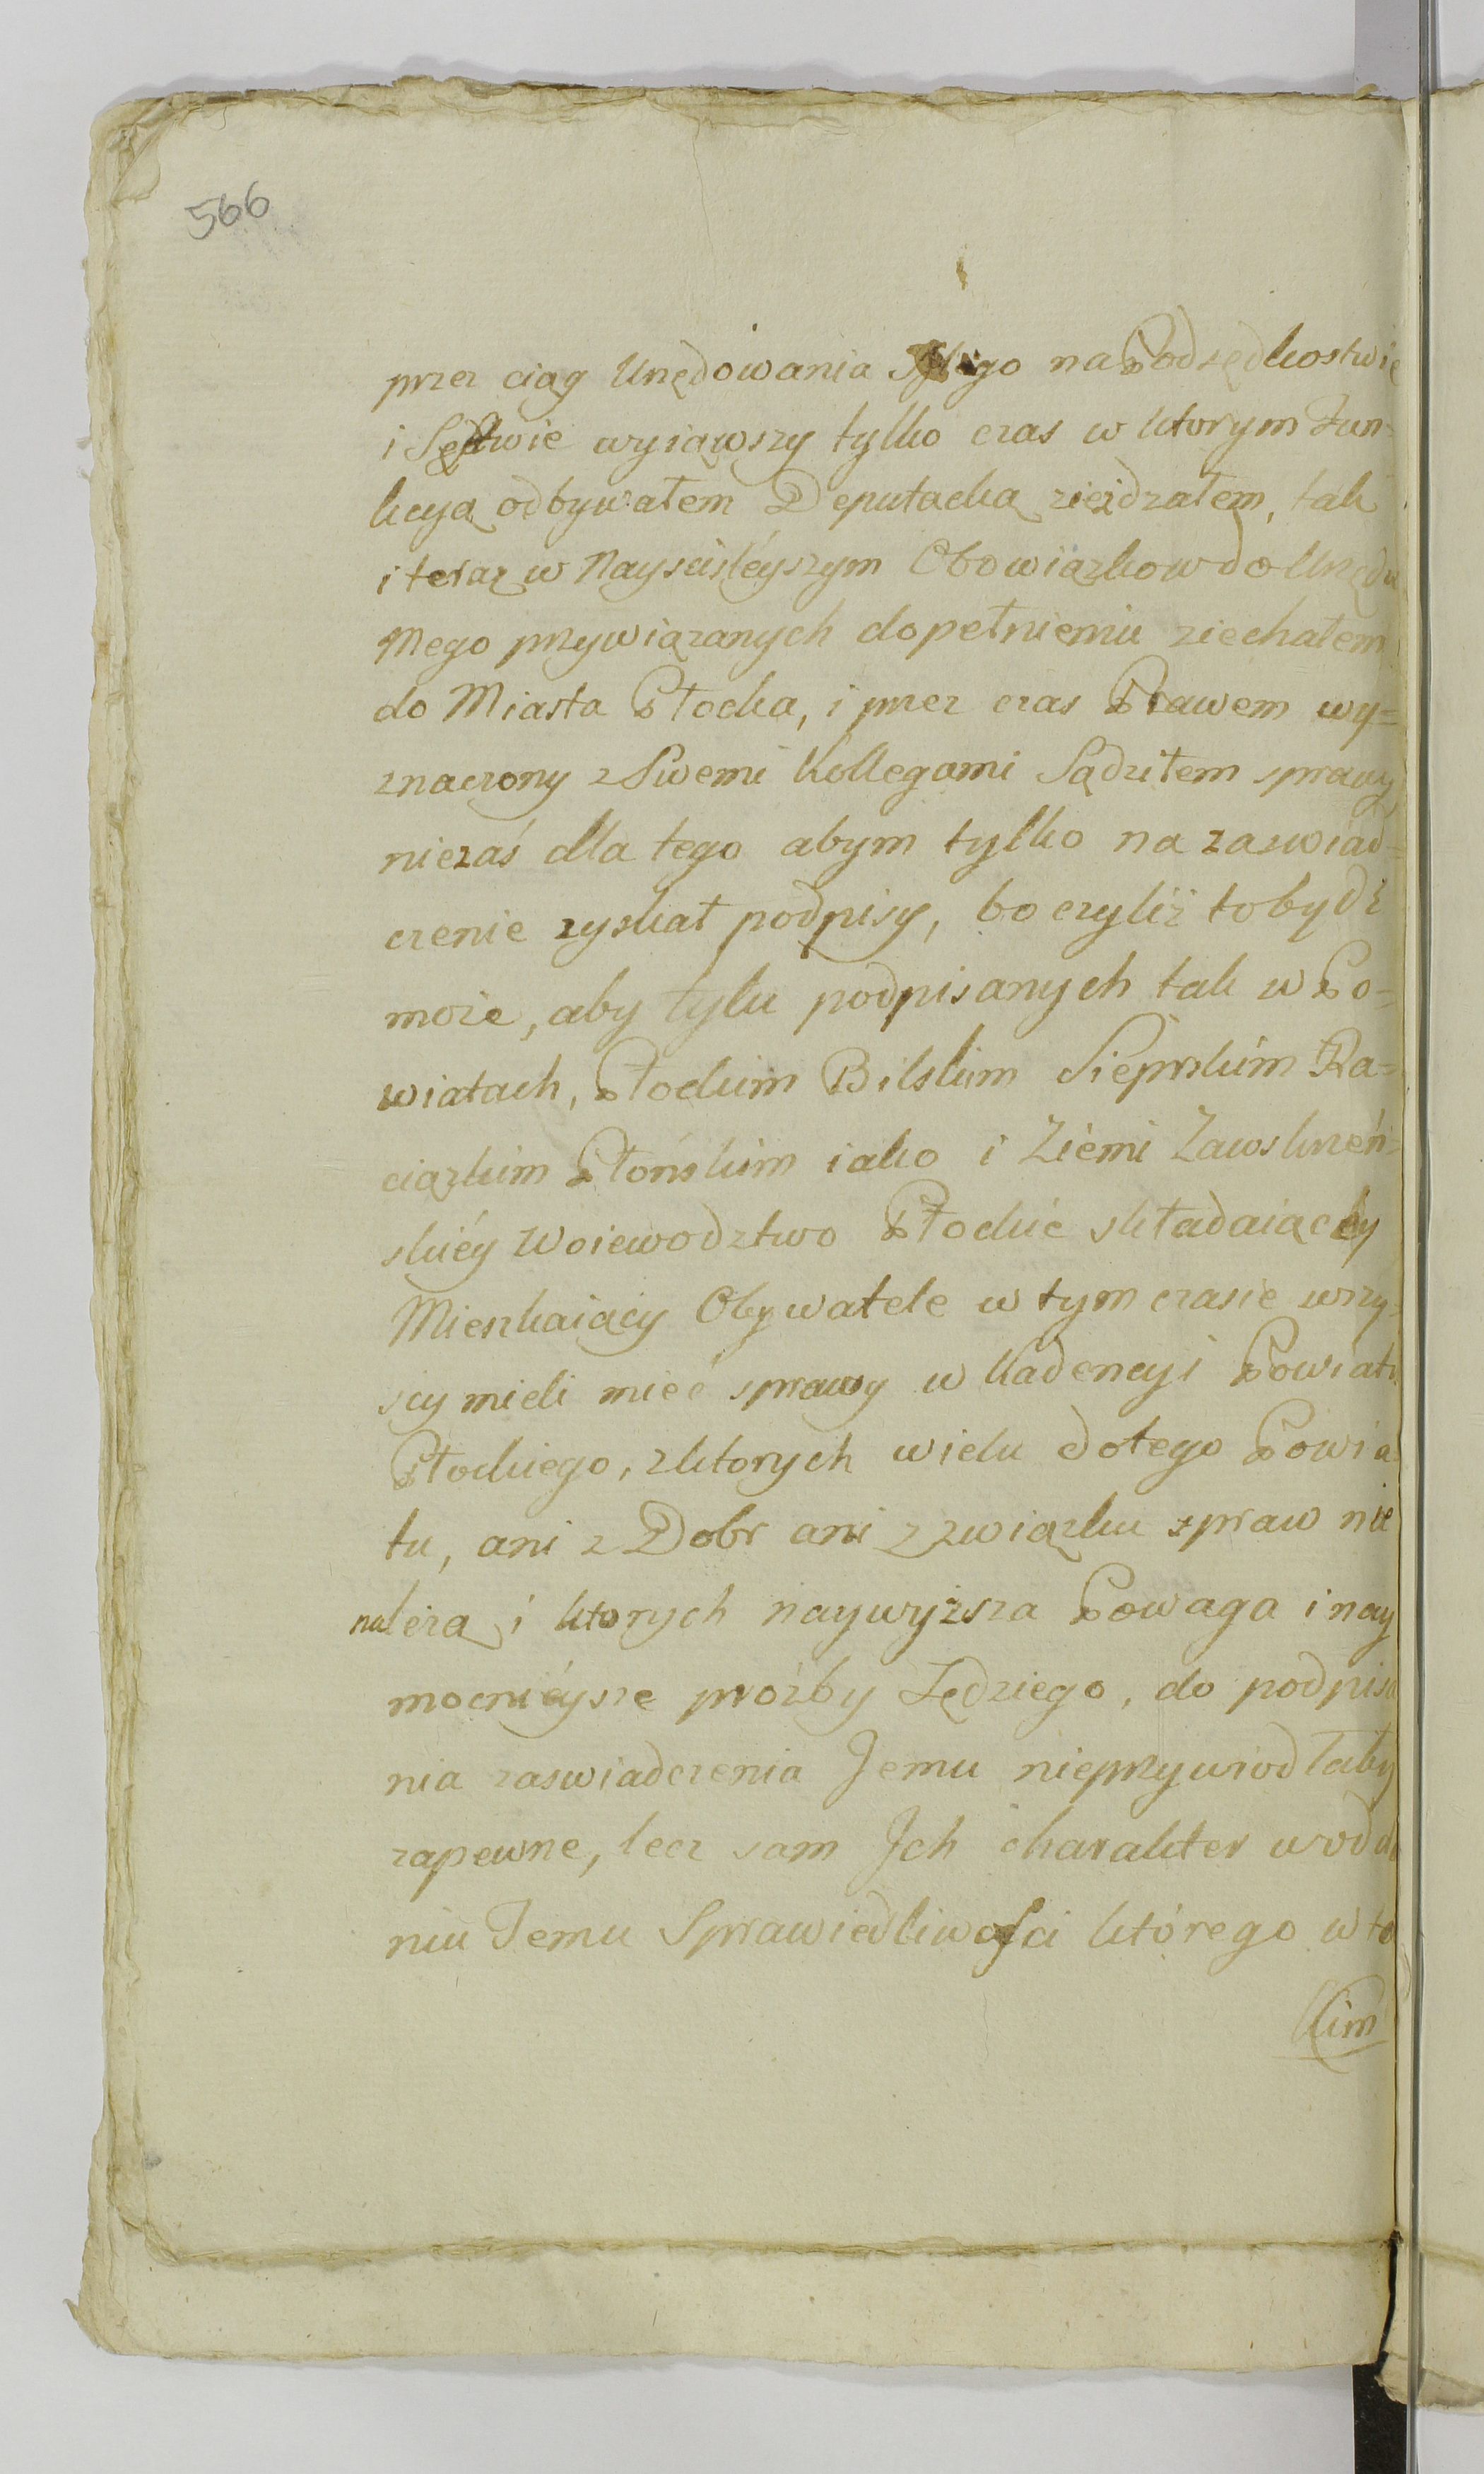 566
przez ciąg Urzędowania Mego na Podsędkostwie
i Sęstwie wyiąwszy tylko czas w ktorym Fun-
kcyą odbywałem Deputacką zieżdzałem, tak
i teraz w Nayscisléyszym Obowiązkow do Urzędu
Mego przywiązanych dopełnieniu ziechałem
do Miasta Płocka, i przez czas Prawem wy=
znaczony z Swemi Kollegami Sądziłem sprawy,
niezaś dla tego abym tylko na zaswiad=
czenie zyskał podpisy, bo czyliż to bydź
może, aby tylu podpisanych tak w Po=
wiatach, Płockim Bilskim Sieprskim Ra=
ciązkim Płońskim iako i Ziemi Zawskrzeń=
skiéy Woiewodztwo Płockie składaiącéy
Mieszkaiący Obywatele w tym czasie wszy-
scy mieli mieć sprawy w Kadencyi Powiatu
Płockiego, z ktorych wielu do tego Powia-
tu, ani z Dobr ani z związku spraw nie
należą i ktorych naywyższa Powaga i nay
mocniéysze proźby Sędziego, do podpisa
nia zaswiadczenia Jemu nieprzywiodłaby
zapewne, lecz sam Ich charakter w odda
niu Jemu Sprawiedliwości którego w ta
kim